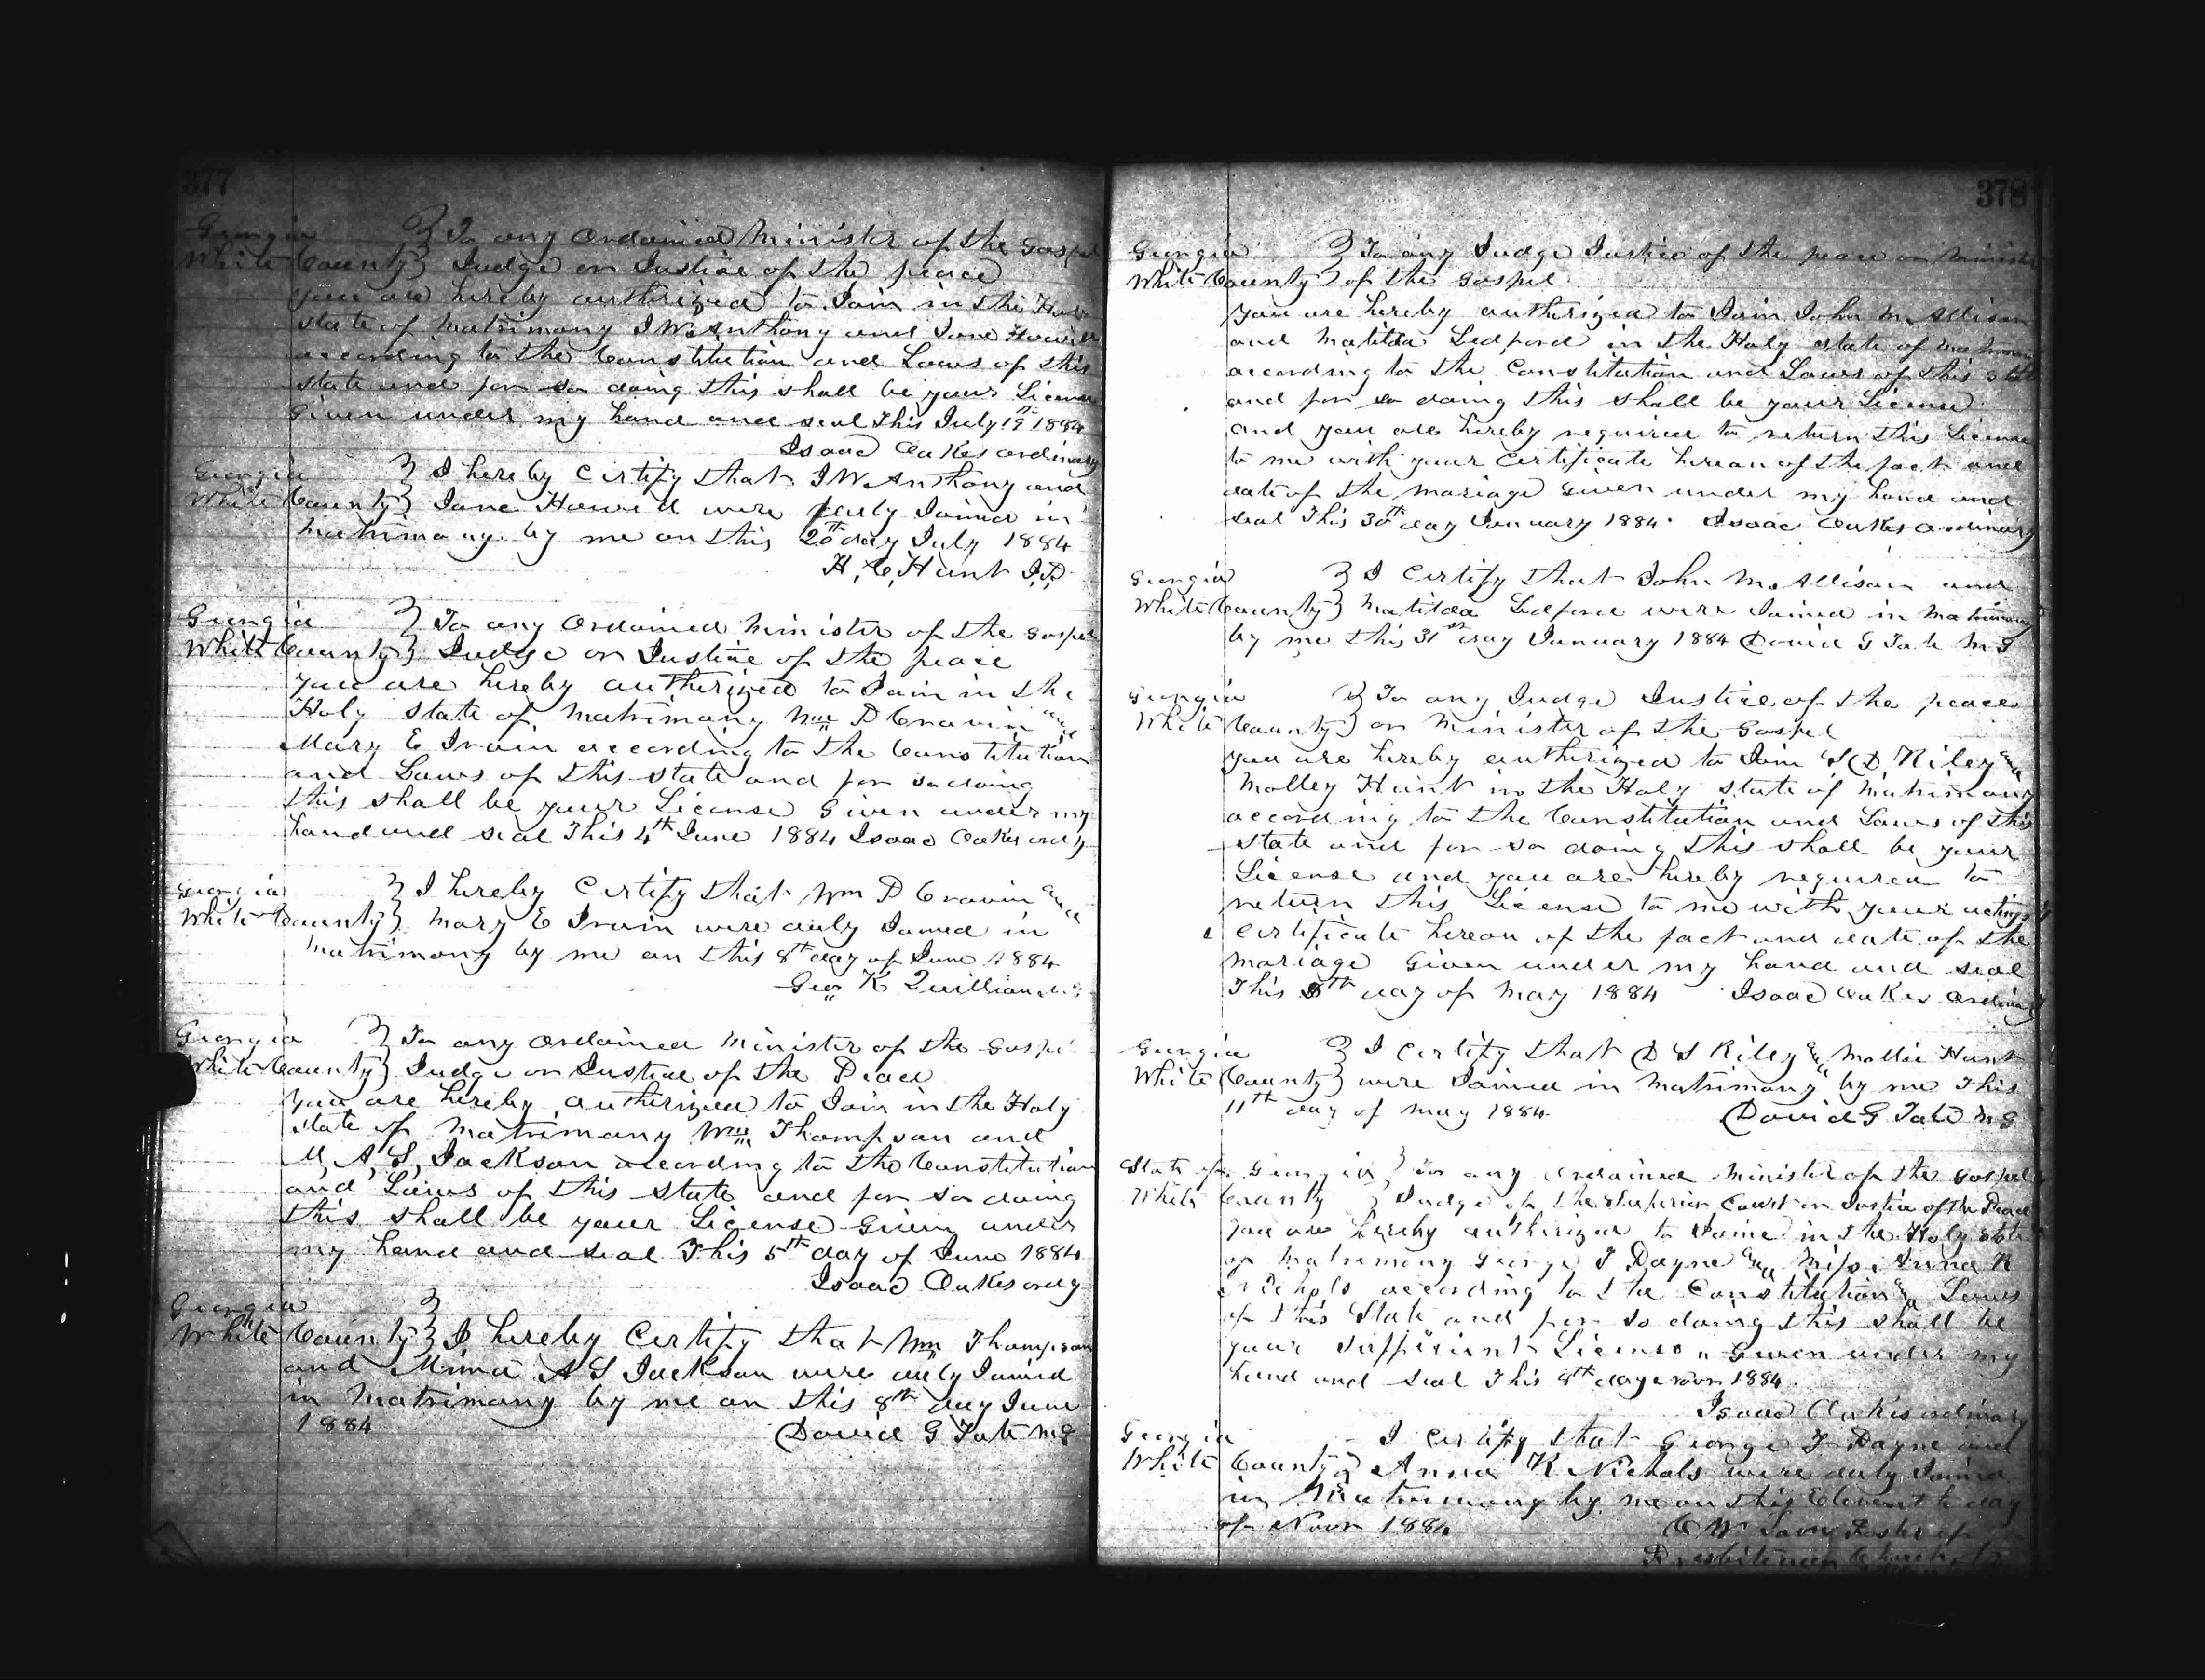 377
Georgia } To any Ordained Minister of the Gospel
White County } Judge or Justice of the peace
you are hereby authorized to Join in the Holy
state of Matrimony J W Anthony and Jane
according to the Constitution and Laws of this
state and for so doing this shall be your License
given under my hand and seal This July 19th 1884
Isaac Oakes ordinary
Georgia } I hereby Certify that J W Anthony and
White County } Jane were duly Joined in
matrimony by me on this 20th day July 1884
H. C. Hunt J.P.
Georgia } To any Ordained Minister of the Gospel
White County } Judge or Justice of the peace
you are hereby authorized to Join in the
Holy state of Matrimony Wm D Cravin and
Mary E Irvin according to the Constitution
and Laws of this state and for so doing
this shall be your License Given under my
hand and seal This 4th June 1884 Isaac Oakes ordy
Georgia } I hereby Certify that Wm D Cravin and
White County } Mary E Irvin were duly Joined in
matrimony by me on this 8th day of June 1884
Geo K Quillian
Georgia } To any Ordained Minister of the Gospel
White County } Judge or Justice of the Peace
you are hereby authorized to Join in the Holy
state of Matrimony Wm Thompson and
M, A, S, Jackson according to the Constitution
and Laws of this state and for so doing
this shall be your License Given under
my hand and seal This 5th day of June 1884
Isaac Oakes ordy
Georgia }
White County } I hereby Certify that Wm Thompson
and A S Jackson were duly Joined
in Matrimony by me on this 8th day June
1884 David G Tate MG
378
Georgia } To any Judge Justice of the peace or Minister
White County } of the Gospel
you are hereby authorized to Join John M Allison
and Matilda Ledford in the Holy state of matrimony
according to the Constitution and Laws of this state
and for so doing this shall be your License
and you are hereby required to return this License
to me with your Certificate hereon of the fact and
date of the mariage given under my hand and
seal This 30th day January 1884. Isaac Oakes ordinary
Georgia } I Certify that John M Allison and
White County } Matilda Ledford were Joined in Matrimony
by me this 31st day January 1884 David G Tate MG
Georgia } To any Judge Justice of the peace
White County } or Minister of the Gospel
you are hereby authorized to Join S D Riley and
Molley Hunt in the Holy state of Matrimony
according to the Constitution and Laws of this
state and for so doing this shall be your
License and you are hereby required to
return this License to me with your actings &
Certificate hereon of the fact and date of the
mariage Given under my hand and seal
This 5th day of May 1884 Isaac Oakes ordinary
Georgia } I Certify that D S Riley & Mollie Hunt
White County } were Joined in Matrimony by me This
11th day of May 1884 David G Tate MG
State of Georgia } To any ordained Minister of the Gospel
White County } Judge of the Superior Court or Justice of the Peace
you are hereby authorized to Joine in the Holy state
of Matrimony George T Dayne and Miss Anna K
Nichols according to the Constitution & Laws
of this State and for so doing this shall be
your sufficient License. Given under my
hand and seal This 8th day Novr 1884.
Isaac Oakes ordinary
Georgia I Certify that George T Dayne and
White County } Anna K Nichols were duly Joined
in Matrimony by me on this Eleventh day
of Novr 1884 C W
Presbiterian Church